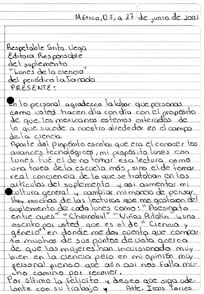 México, D.F., a 27 de junio de 2001
Respetable Srita. Vega
Editora Responsable
del suplemento
"Lunes de la ciencia"
del periódico la Jornada
PRESENTE:
En lo personal agradesco la labor que personas
como usted hacen día con día con el propósito
de que los mexicanos estemos enterados de
lo que sucede a nuestro alrededor en el campo
de la ciencia.
Aparte del propósito escolar que era el conocer los
avances tecnológicos, mi propósito lunes con
lunes fue el de no tomar esa lectura como
una tarea de la escuela más, sino el de tomar
real conciencia de lo que se trataban en los
artículos del suplemento y así aumentar mi
cultura general y cambiar mi forma de pensar.
Hay muchas de las lecturas que me gustaron del
suplemento de cada lunes como: "Psicópata
entre rejas" "Chernobil" "Niñas Ritalin" y una
escrito por usted que es el de "Ciencia y
género" en donde me doy cuenta que comparto
muchos de sus puntos de vista acerca
de que las mujeres han incursionado muy
bien en la ciencia pero en mi opinión muy
personal pienso que aún así nos falta mucho
camino por recorrer.
Por último la felicito y deseo que siga adelante
con su trabajo y Atte: Irma Torres